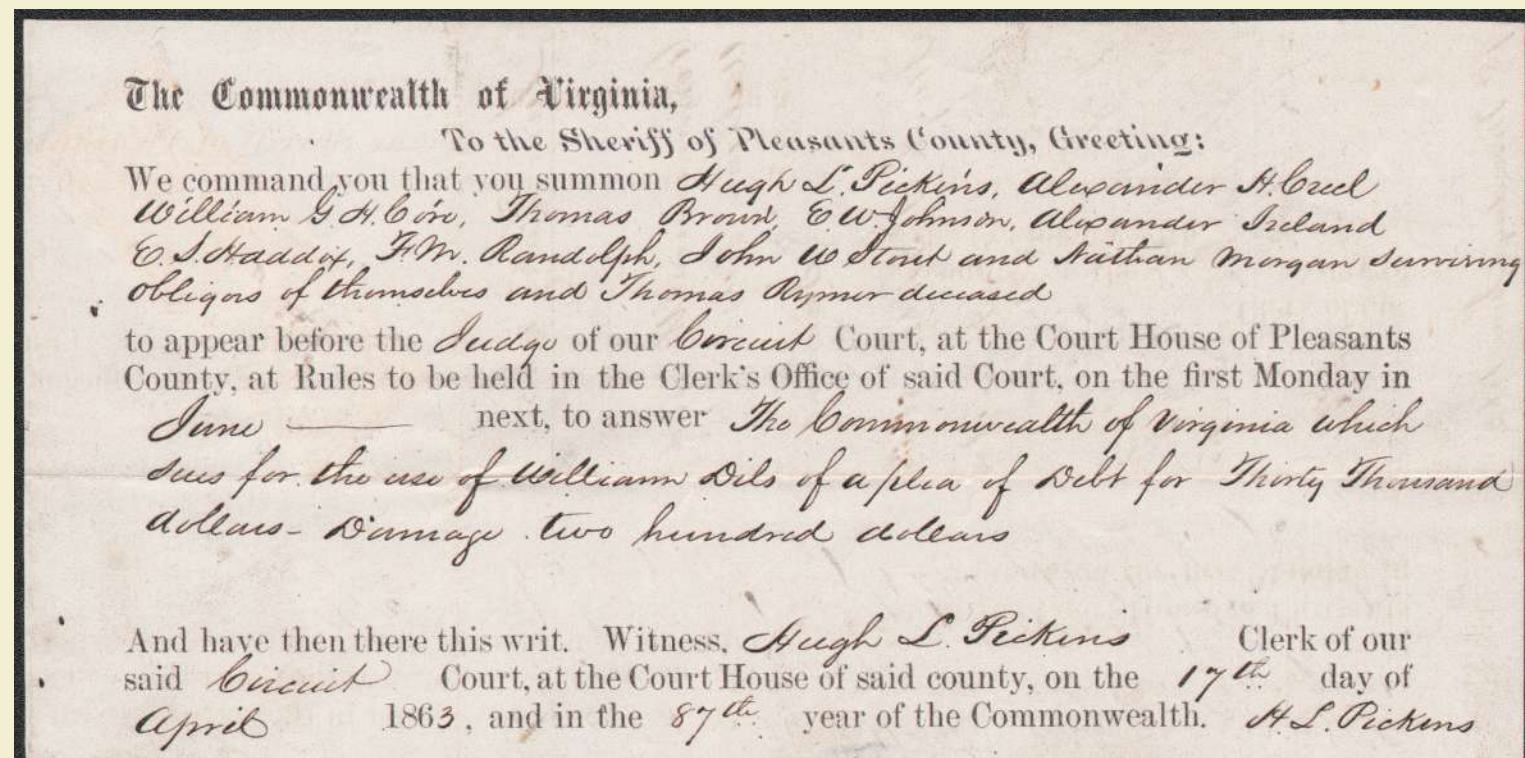 The Commonwealth of Virginia,
To the Sheriff of Pleasants County, Greeting:
We command you that you summon Hugh L. Pickins, Alexander H. Creel
William G. H. Core, Thomas Brown, E. W. Johnson, Alexander Ireland
E. S. Haddox, F. M. Randolph, John W Stout and Nathan Morgan surviving
obligors of themselves and Thomas Rymer deceased
to appear before the Judge of our Circuit Court, at the Court House of Pleasants
County, at Rules to be held in the Clerk's Office of said Court, on the first Monday in
June — next, to answer The Commonwealth of Virginia which
sues for the use of William Dils of a plea of Debt for Thirty Thousand
dollars - Damage two hundred dollars
And have then there this writ. Witness, Hugh L. Pickins Clerk of our
said Circuit Court, at the Court House of said county, on the 17th day of
April 1863, and in the 87th year of the Commonwealth. H. L. Pickens